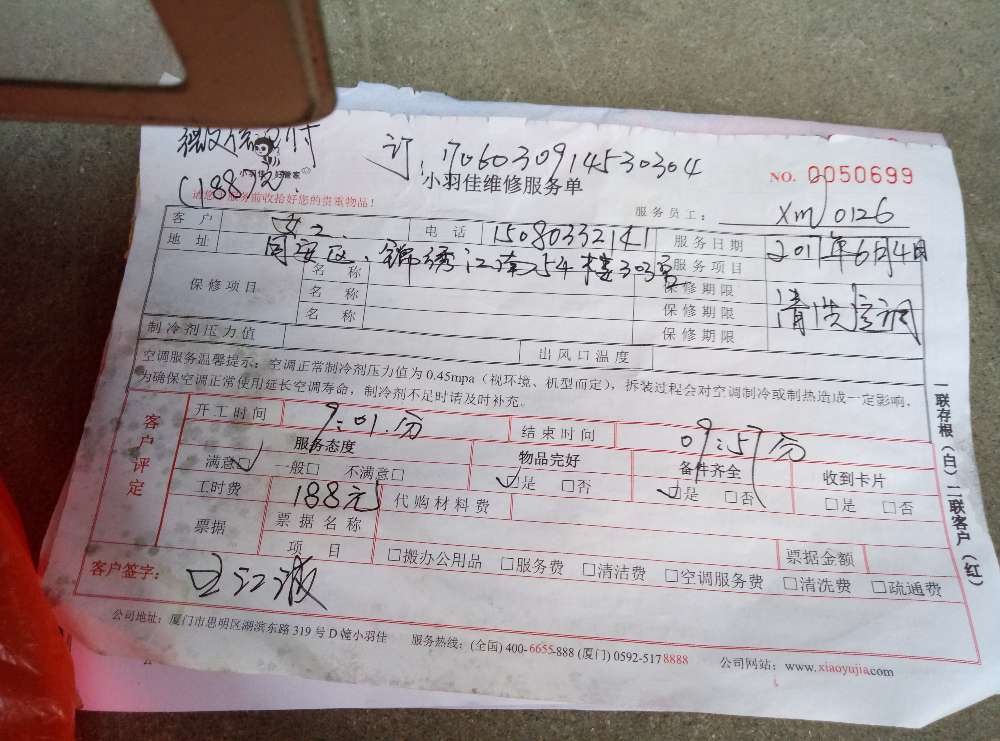 微信支付
(188元)
订:1706030914530304
小羽佳 好管家
小羽佳维修服务单
NO. 0050699
请您在服务前收拾好您的贵重物品!
服务员工: xm0126
客户 电话 15080332141 服务日期 2017年6月4日
地址 同安区、锦绣江南254楼303室 服务项目 清洗空调
保修项目 名称 保修期限
名称 保修期限
名称 保修期限
制冷剂压力值 出风口温度
空调服务温馨提示:空调正常制冷剂压力值为 0.45mpa(视环境、机型而定),拆装过程会对空调制冷或制热造成一定影响,
为确保空调正常使用延长空调寿命,制冷剂不足时请及时补充。
客户评定
开工时间 9:01.分 结束时间 09:57分
服务态度 物品完好 备件齐全 收到卡片
满意☑ 一般□ 不满意□ ☑是 □否 ☑是 □否 □是 □否
工时费 188元 代购材料费
票据 票据名称
项目 □搬办公用品 □服务费 □清洁费 □空调服务费 □清洗费 □疏通费 票据金额
客户签字: 王江波
公司地址:厦门市思明区湖滨东路 319 号 D 幢小羽佳 服务热线:(全国) 400-6655-888 (厦门) 0592-517 8888 公司网站:www.xiaoyujia.com
一联存根(白)二联客户(红)